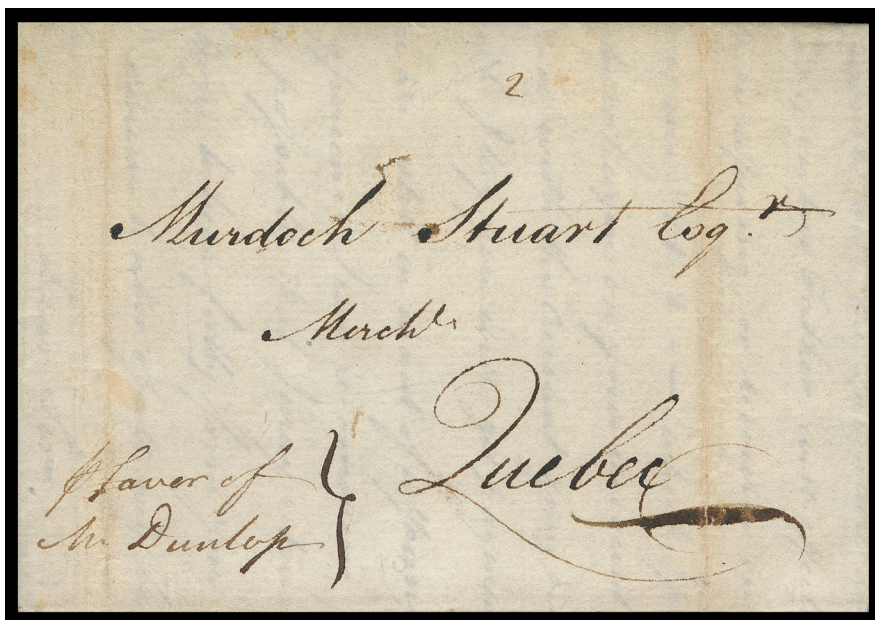 2
Murdoch Stuart Esqr.
Mercht.
Quebec
⅌ Favor of
Mr Dunlop